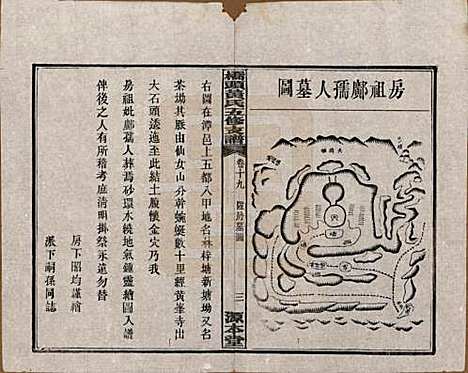 房祖鄺孺人墓圖
穴
橋頭黃氏五修支譜
卷十九
墓圖
三
源本堂
右圖在漳邑上五都八甲地名林梓塘新塘坳又名
茶場其脈由仙女山分幹蜿蜒數十里經黃峯寺出
大石頭逶迤至此結土腹懷金穴乃我
房祖妣鄺孺人葬焉砂環水繞地氣鍾靈繪圖入譜
俾後之人有所稽考庶清明掛祭永遠勿替
房下昭均謹繪
派下嗣孫同誌